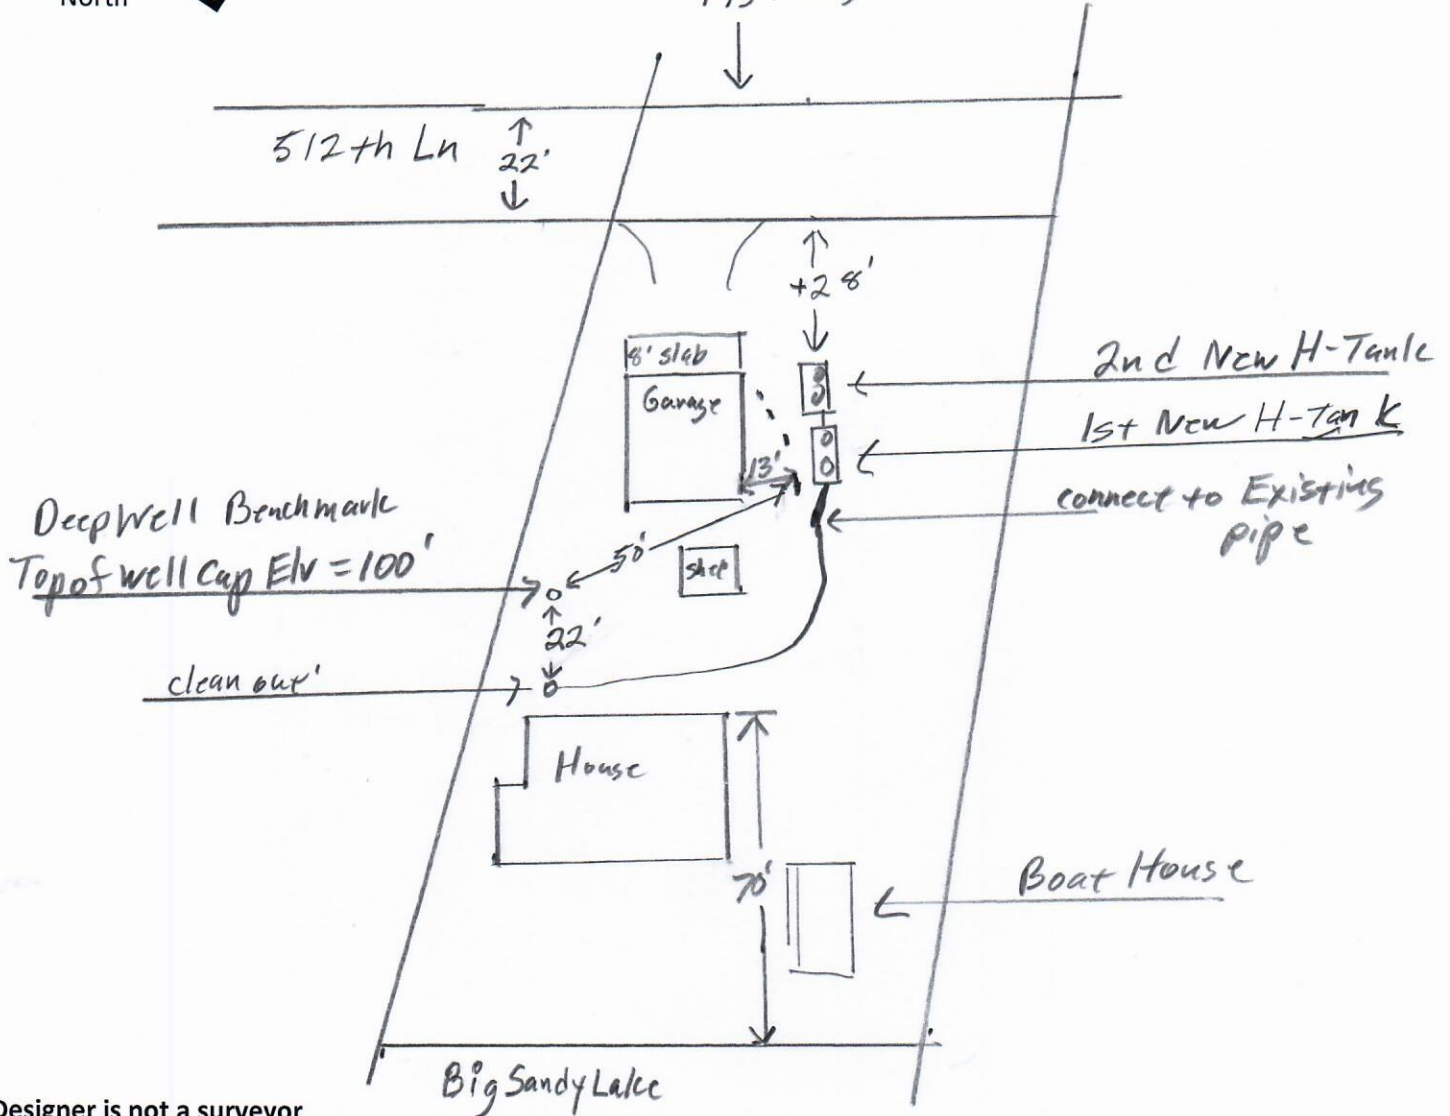 North
512th Ln
22'
+28'
8' slab
Garage
2nd New H-Tank
1st New H-Tank
13'
connect to Existing
pipe
Deep Well Benchmark
Top of well Cap Elv = 100'
50'
shed
22'
clean out'
House
70'
Boat House
Big Sandy Lake
Designer is not a surveyor